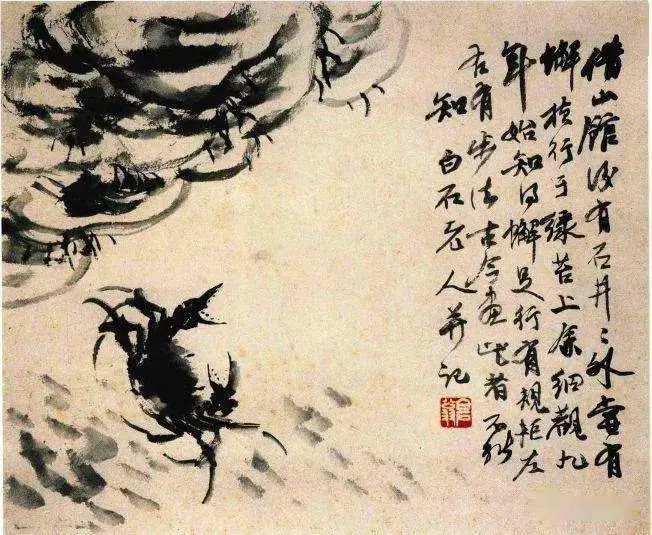 借山館後有石井〻外嘗有
蠏横行于綠苔上余細觀九
年始知得蠏足行有規矩左
右有步法古今畫此者不能
知 白石老人并記